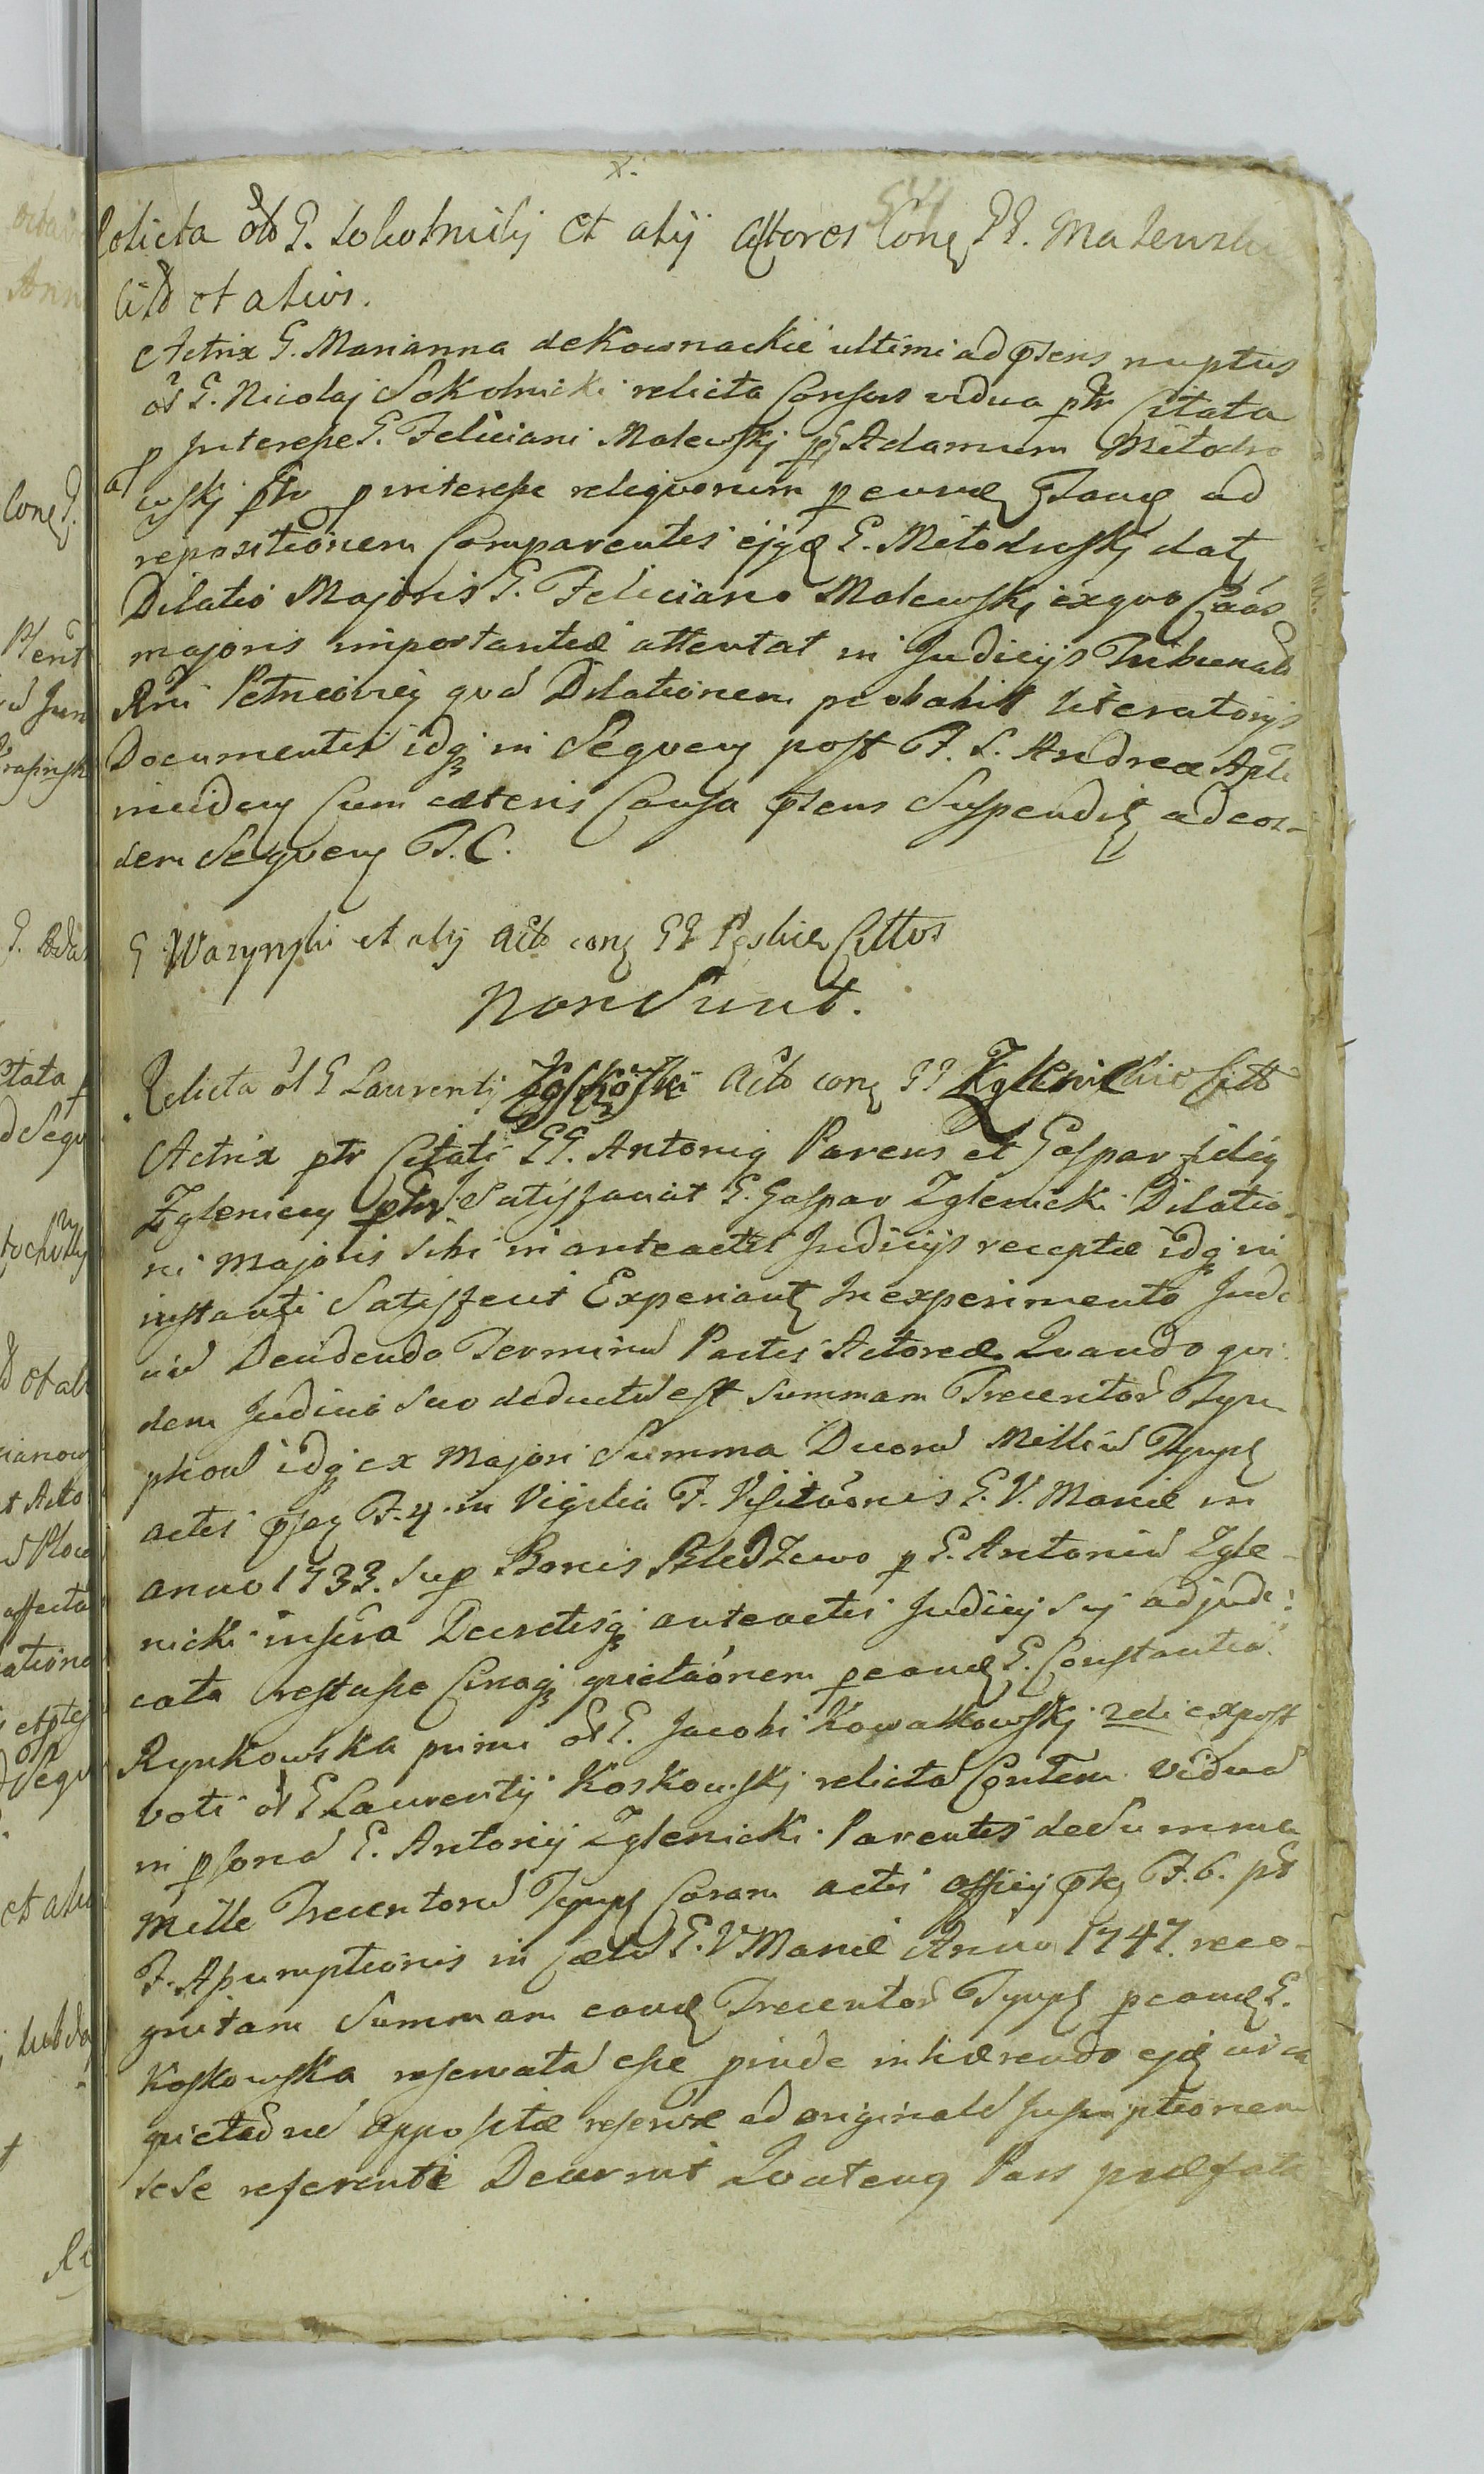 x.
544
Relicta ol G. Sokolnicki et alij Actores Conq GG. Malewskie
Citt et alios.
Actrix G. Marianna de Kownackie ultimi ad prsens nuptus
ol G. Nicolaj Sokolnicki relicta Consors vidua ptr Citata
p Interesse G. Feliciani Malewskj p G Adamum Mełodro
wskj ptr p interesse reliquorum p eund stanq ad
repositionem Comparentes ejqd G. Mełodrwskj datq
Dilatio Majoris G. Feliciano Malewskj exquo Caas
majoris importantiæ attentat in Judicijs Tribunals
Rni Petricovien qvd Dilationem probabit Literatorijs
Documentis idq in Seqven post F. S. Andreæ Apli
inciden Cum cæteris Causa prsens Suspendit ad eos-
dem Seqven T. C.
G Wazynski et alij Acto conq GG Pęskie Cittos
Non Sunt.
Relicta ol G Laurentij Koskowski Acto conq GG Zglenickie Citt
Actrix ptr Citati GG. Antonig Parens et Gaspar filig
Zgleniccy ptr. Satisfaciat G. Gaspar Zglenicki Dilatio-
ni Majoris Sibi in anteactis Judicijs receptæ idq in
instanti Satisfecit Experiantq In experimento Judi
ciu Decidendo Terminu Partis Actoreæ Quando qvi
dem Judicio Suo deductu est Summam Trecentoru Tym
phoru idq ex Majori Summa Duoru Milliu Tymph
actis prsen F. 4 in Vigilia F. Visitaonis G. V. Mariæ in
anno 1733. Sup Bonis Bledzewo p G. Antoniu Zgle-
nicki inscra Decretisq anteactis Judicij Sui adjudi:
cata restasse Circaq quietaonem p eand G. Constantia
Rynkowska primi ol G. Jacobi Kowalkowskj 2di expost
voti ol G Laurentij Koskowskj relicta Contem Vidua
in psona G. Antonij Zglenicki Parentis de Summa
Mille Trecentoru Tymph Coram actis officij pten F. 6. pt
F. Assumptionis in Cælu G. V Mariæ Anno 1747. reco-
gnitam Summam eand Trecentoru Tymph p eand G.
Koskowska reservata esse proinde inhærendo ejd circa
quietaone appositæ reservæ ad originale Inscriptionem
sese referenti Decernit Quatenq Pars præfata